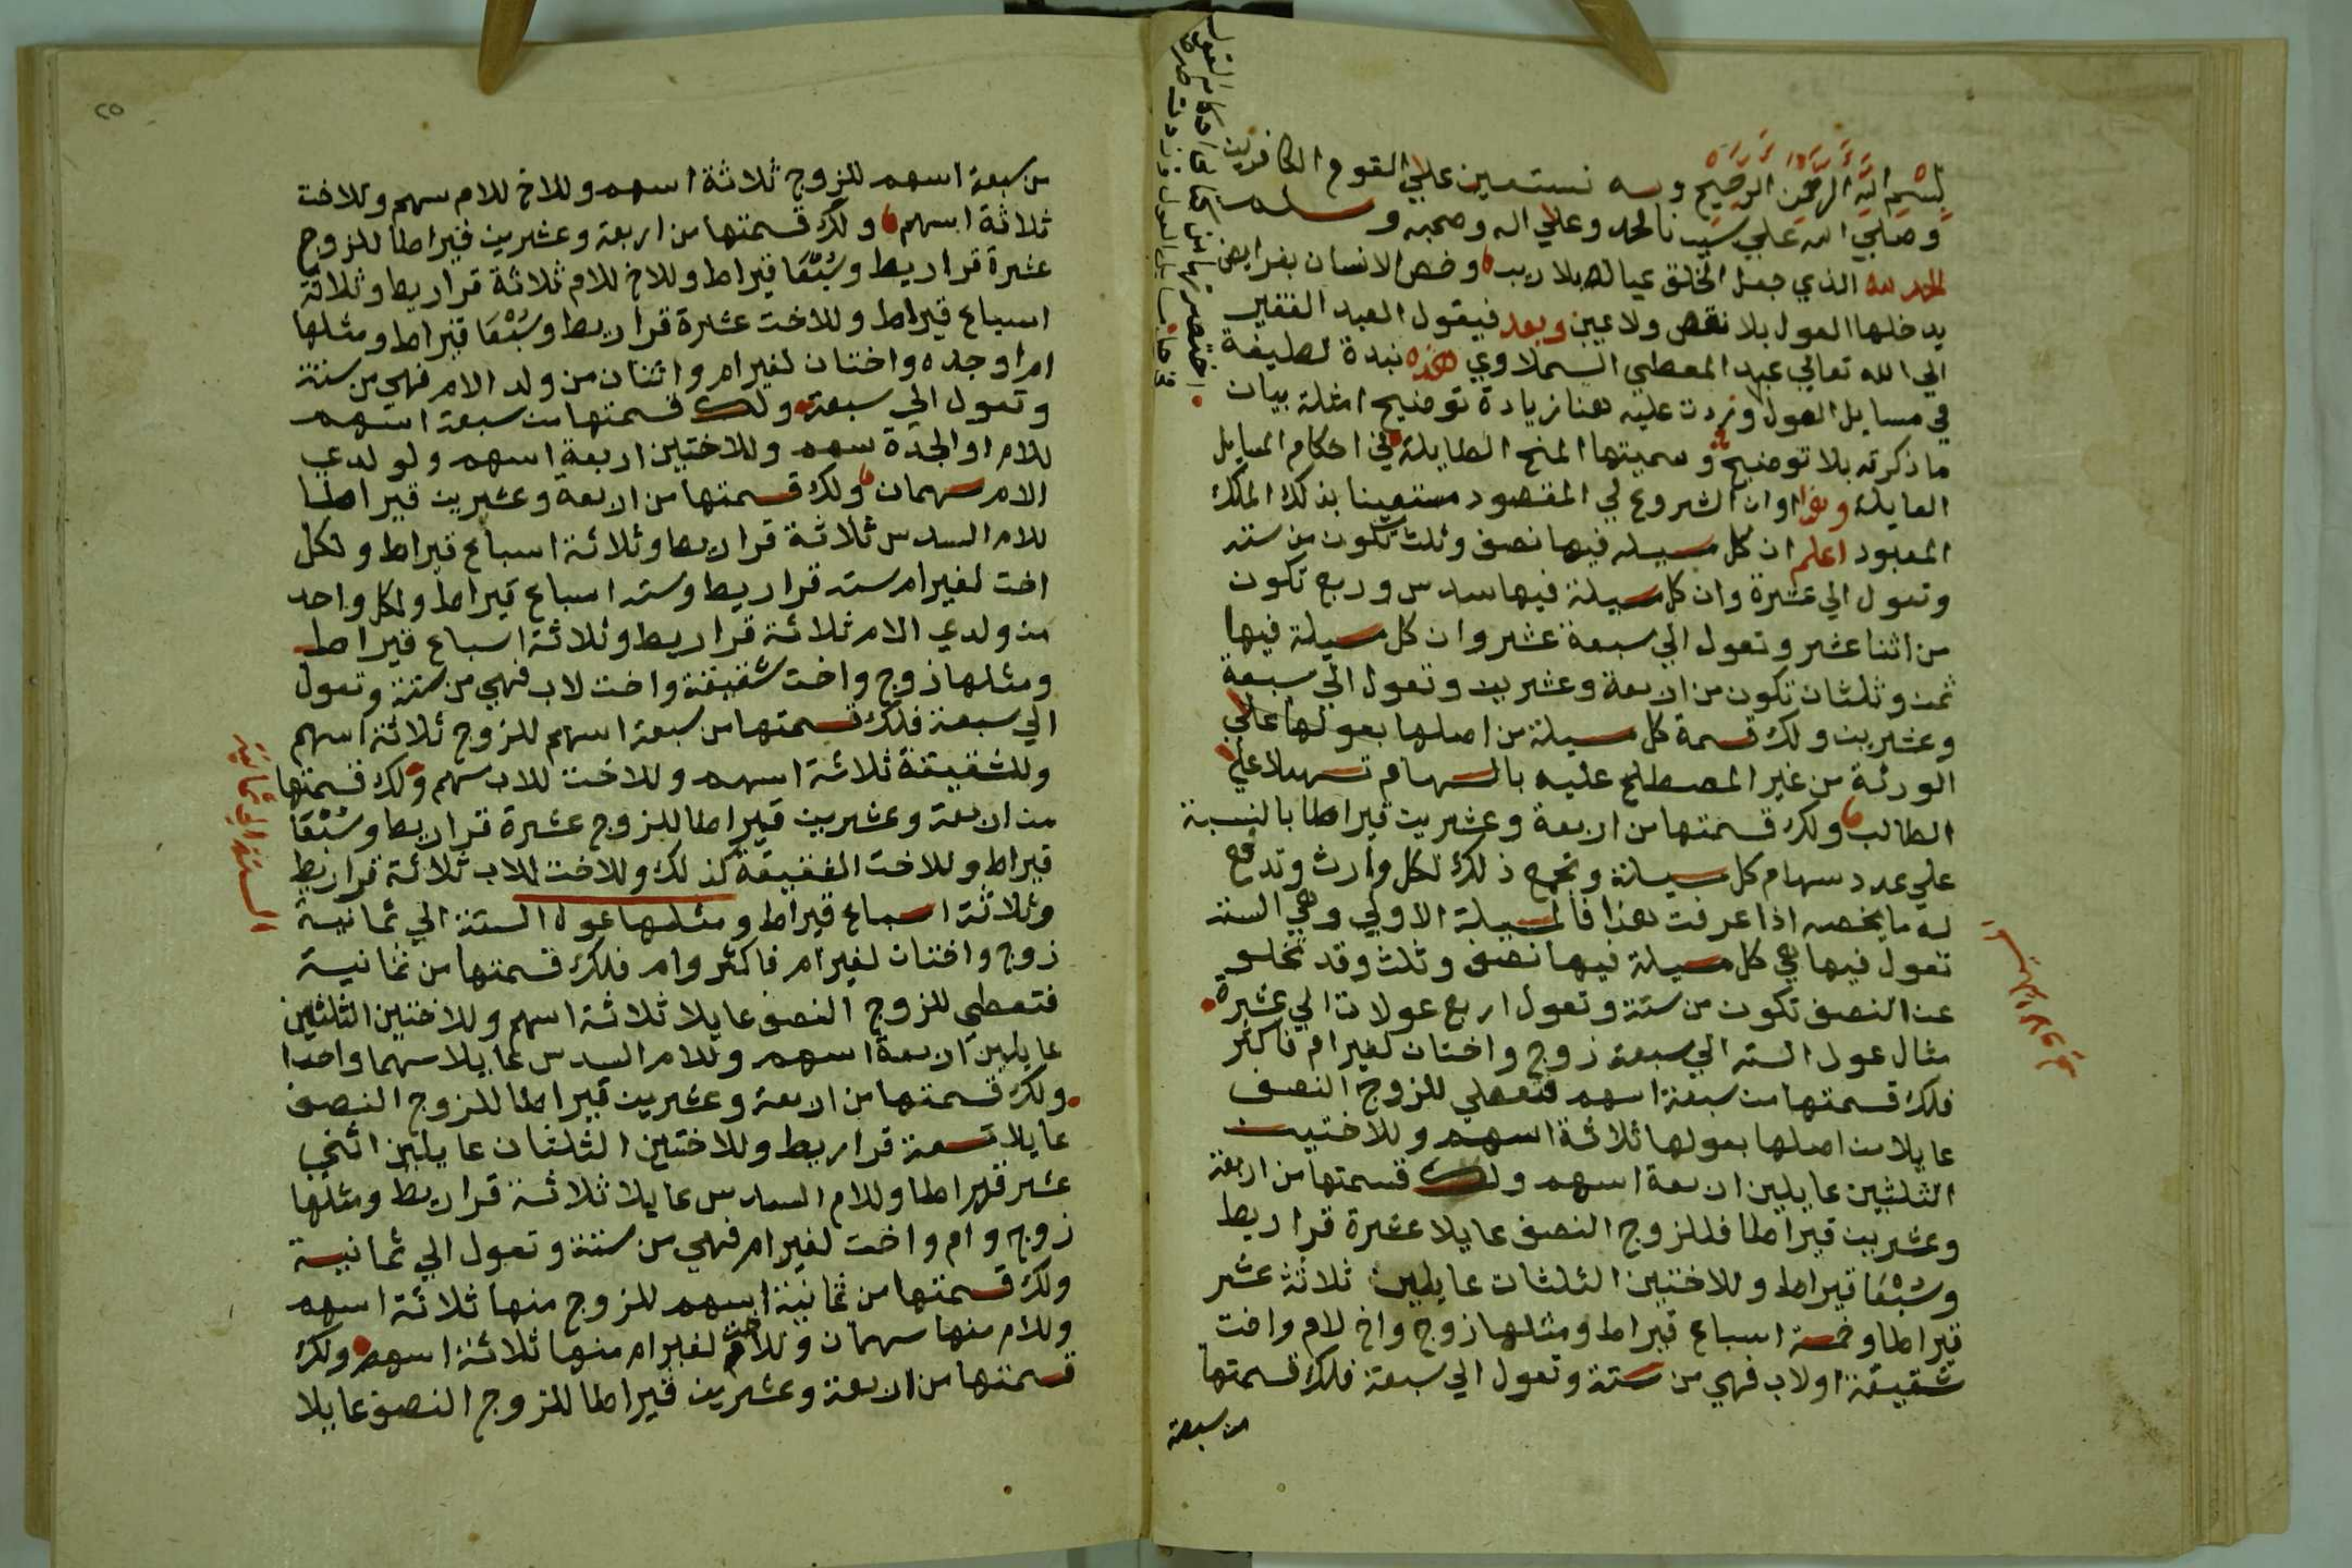 بسم الله الرحمن الرحيم وبه نستعين علي القوم الكافرين
وصلي الله علي سيدنا محمد وعلي اله وصحبه وسلم
الحمد لله الذي جعل الخلق عياله بلا ريب وخص الانسان بفرايض
يدخلها العول بلا نقص ولا عيب وبعد فيقول العبد الفقير
الي الله تعالي عبد المعطي السملاوي هذه نبذة لطيفة
في مسايل العول وزدت عليه هنا زيادة توضيح امثلة بيان
ما ذكرته بلا توضيح وسميتها المنح الطايلة في احكام المسايل
العايلة وهذا اوان الشروع في المقصود مستعينا بذلك الملك
المعبود اعلم ان كل مسيلة فيها نصف وثلث تكون من ستة
وتعول الي عشرة وان كل مسيلة فيها سدس وربع تكون
من اثنا عشر وتعول الي سبعة عشر وان كل مسيلة فيها
ثمن وثلثان تكون من اربعة وعشرين وتعول الي سبعة
وعشرين ولك قسمة كل مسيلة من اصلها بعولها علي
الورثة من غير المصطلح عليه بالسهام تسهيلا علي
الطالب ولك قسمتها من اربعة وعشرين قيراطا بالنسبة
علي عدد سهام كل مسيلة وتجمع ذلك لكل وارث وتدفع
له ما يخصه اذا عرفت هذا فالمسيلة الاولي وهي الستة
تعول فيها هي كل مسيلة فيها نصف وثلث وقد تخلو
عن النصف تكون من ستة وتعول اربع عولات الي عشرة
مثال عول الستة الي سبعة زوج واختان لغير ام فاكثر
فلك قسمتها من سبعة اسهم فتعطي للزوج النصف
عايلا من اصلها بعولها ثلاثة اسهم وللاختين
الثلثين عايلين اربعة اسهم ولك قسمتها من اربعة
وعشرين قيراطا فللزوج النصف عايلا عشرة قراريط
وسُبْعَا قيراط وللاختين الثلثان عايلين ثلاثة عشر
قيراطا وخمسة اسباع قيراط ومثلها زوج واخ لام واخت
شقيقة او لاب فهي من ستة وتعول الي سبعة فلك قسمتها
من سبعة
من سبعة اسهم للزوج ثلاثة اسهم وللاخ للام سهم وللاخت
ثلاثة اسهم ولك قسمتها من اربعة وعشرين قيراطا للزوج
عشرة قراريط وسُبْعَا قيراط وللاخ للام ثلاثة قراريط وثلاثة
اسباع قيراط وللاخت عشرة قراريط وسُبْعَا قيراط ومثلها
ام او جده واختان لغير ام واثنان من ولد الام فهي من ستة
وتعول الي سبعة ولك قسمتها من سبعة اسهم
للام او الجدة سهم وللاختين اربعة اسهم ولولدي
الام سهمان ولك قسمتها من اربعة وعشرين قيراطا
للام السدس ثلاثة قراريط وثلاثة اسباع قيراط ولكل
اخت لغير ام ستة قراريط وستة اسباع قيراط ولكل واحد
من ولدي الام ثلاثة قراريط وثلاثة اسباع قيراط
ومثلها زوج واخت شقيقة واخت لاب فهي من ستة وتعول
الي سبعة فلك قسمتها من سبعة اسهم للزوج ثلاثة اسهم
وللشقيقة ثلاثة اسهم وللاخت للاب سهم ولك قسمتها
من اربعة وعشرين قيراطا للزوج عشرة قراريط وسُبْعَا
قيراط وللاخت الشقيقة كذلك وللاخت للاب ثلاثة قراريط
وثلاثة اسباع قيراط ومثلها عول الستة الي ثمانية
زوج واختان لغير ام فاكثر وام فلك قسمتها من ثمانية
فتعطي للزوج النصف عايلا ثلاثة اسهم وللاختين الثلثين
عايلين اربعة اسهم وللام السدس عايلا سهما واحدا
ولك قسمتها من اربعة وعشرين قيراطا للزوج النصف
عايلا تسعة قراريط وللاختين الثلثان عايلين اثني
عشر قيراطا وللام السدس عايلا ثلاثة قراريط ومثلها
زوج وام واخت لغير ام فهي من ستة وتعول الي ثمانية
ولك قسمتها من ثمانية اسهم للزوج منها ثلاثة اسهم
وللام منها سهمان وللاخت لغير ام منها ثلاثة اسهم ولك
قسمتها من اربعة وعشرين قيراطا للزوج النصف عايلا
الستة الي ثمانية
٢٥